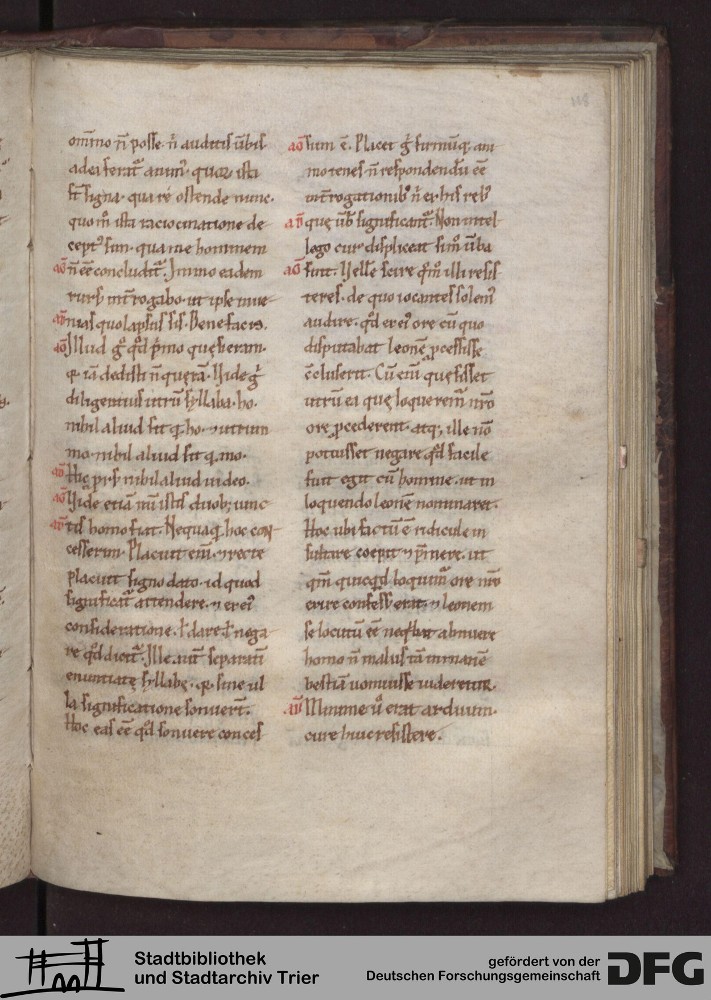 118
om̅ino n̅ posse. n̅ auditis u̅bis
ad ea ferat᷑ anim᷒. quoꝝ ista
st̅ signa. qua re ostende nunc.
quo m̊ ista raciocinatione de
cept᷒ sim. qua me hominem
aḡ n̅ e̅e̅ concludit᷑. Immo eadem
rurs᷒ int̅rogabo. ut ipse inue
nias quo lapsus sis. Bene facis.
aḡ Illud g̊ qd̅ p̅mo quęsieram.
ꝗ ia̅ dedisti n̅ quęra̅. Uide g̊
diligentius utru̅ syllaba. ho.
nihil aliud sit ꝗ. ho. ⁊ utrum
mo. nihil aliud sit ꝗ. mo.
Hic p̱rs᷒ nihil aliud uideo.
aḡ Uide etia̅ nu̅ istis duob; iunc
tis homo fiat. Nequaꝗ. hoc con
cesserim. Placuit eni̅. ⁊ recte
placuit signo dato. id quod
significat᷑ attendere. ⁊ ei᷒ rei
consideratione. ł dare. ł nega
re qd̅ dicit᷑. Ille aut̅ separati̅
enuntiatę syllabę. ꝗ sine ul
la significatione sonuer̅t.
Hoc eas e̅e̅ qd̅ sonuere conces
aḡ sum e̅. Placet g̊ firmu̅q; ani
mo tenes n̅ respondendu̅ e̅e̅
int̅rogationib᷒ n̅ ex his reb᷒
quę u̅b significant᷑. Non intel
lego cur displiceat si m̊ u̅ba
aḡ sunt. Uelle̅ scire qm̅ illi resis
teres. de quo iocantes solem᷒
audire. qd̅ ex ei᷒ ore cu̅ quo
disputabat leone̅ ꝓcessisse
c̅cluserit. Cu̅ eni̅ quęsisset
utru̅ ea quę loquerem᷑ nr̅o
ore ꝓcederent. atq; ille no̅
potuisset negare. qd̅ facile
fuit egit cu̅ homine. ut in
loquendo leone̅ nominaret.
Hoc ubi factu̅ e̅ ridicule in
sultare coepit ⁊ p̅mere. ut
qm̅ quicqd̅ loquim᷑ ore nr̅o
exire confess᷒ erat. ⁊ leonem
se locutu̅ e̅e̅ nequibat abnuere
homo n̅ malus ta̅ immane̅
bestia̅ uomuisse uideretur.
Minime u̅ erat arduum.
cure huic resistere.
Stadtbibliothek
und Stadtarchiv Trier
gefördert von der
Deutschen Forschungsgemeinschaft
DFG